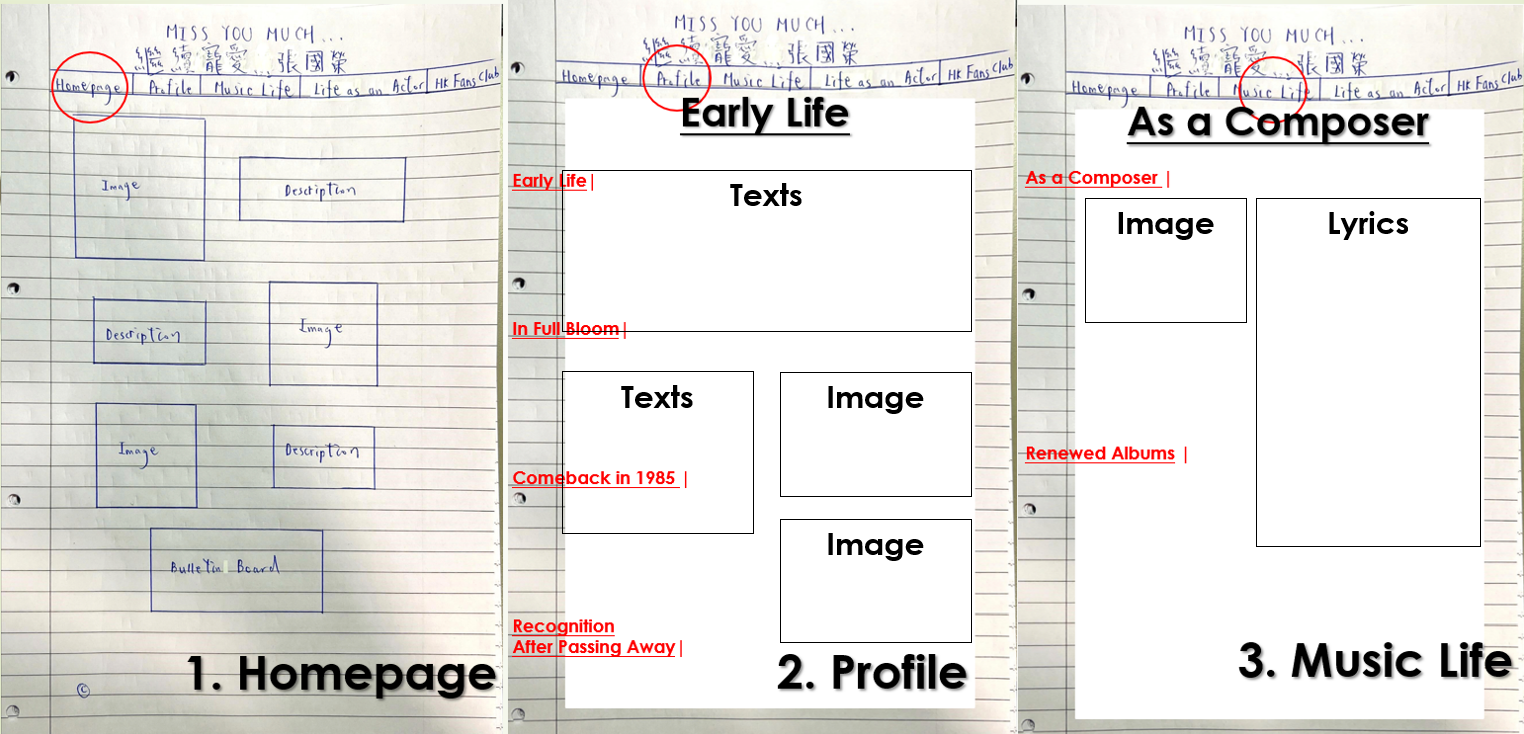 MISS YOU MUCH...
繼續寵愛...張國榮
Homepage Profile Music Life Life as an Actor HK Fans Club
Image
Description
Description
Image
Image
Description
Bulletin Board
©
1. Homepage
MISS YOU MUCH...
繼續寵愛...張國榮
Homepage Profile Music Life Life as an Actor HK Fans Club
Early Life
Early Life|
Texts
In Full Bloom|
Texts
Image
Comeback in 1985 |
Image
Recognition
After Passing Away|
2. Profile
MISS YOU MUCH...
繼續寵愛...張國榮
Homepage Profile Music Life Life as an Actor HK Fans Club
As a Composer
As a Composer |
Image
Lyrics
Renewed Albums |
3. Music Life